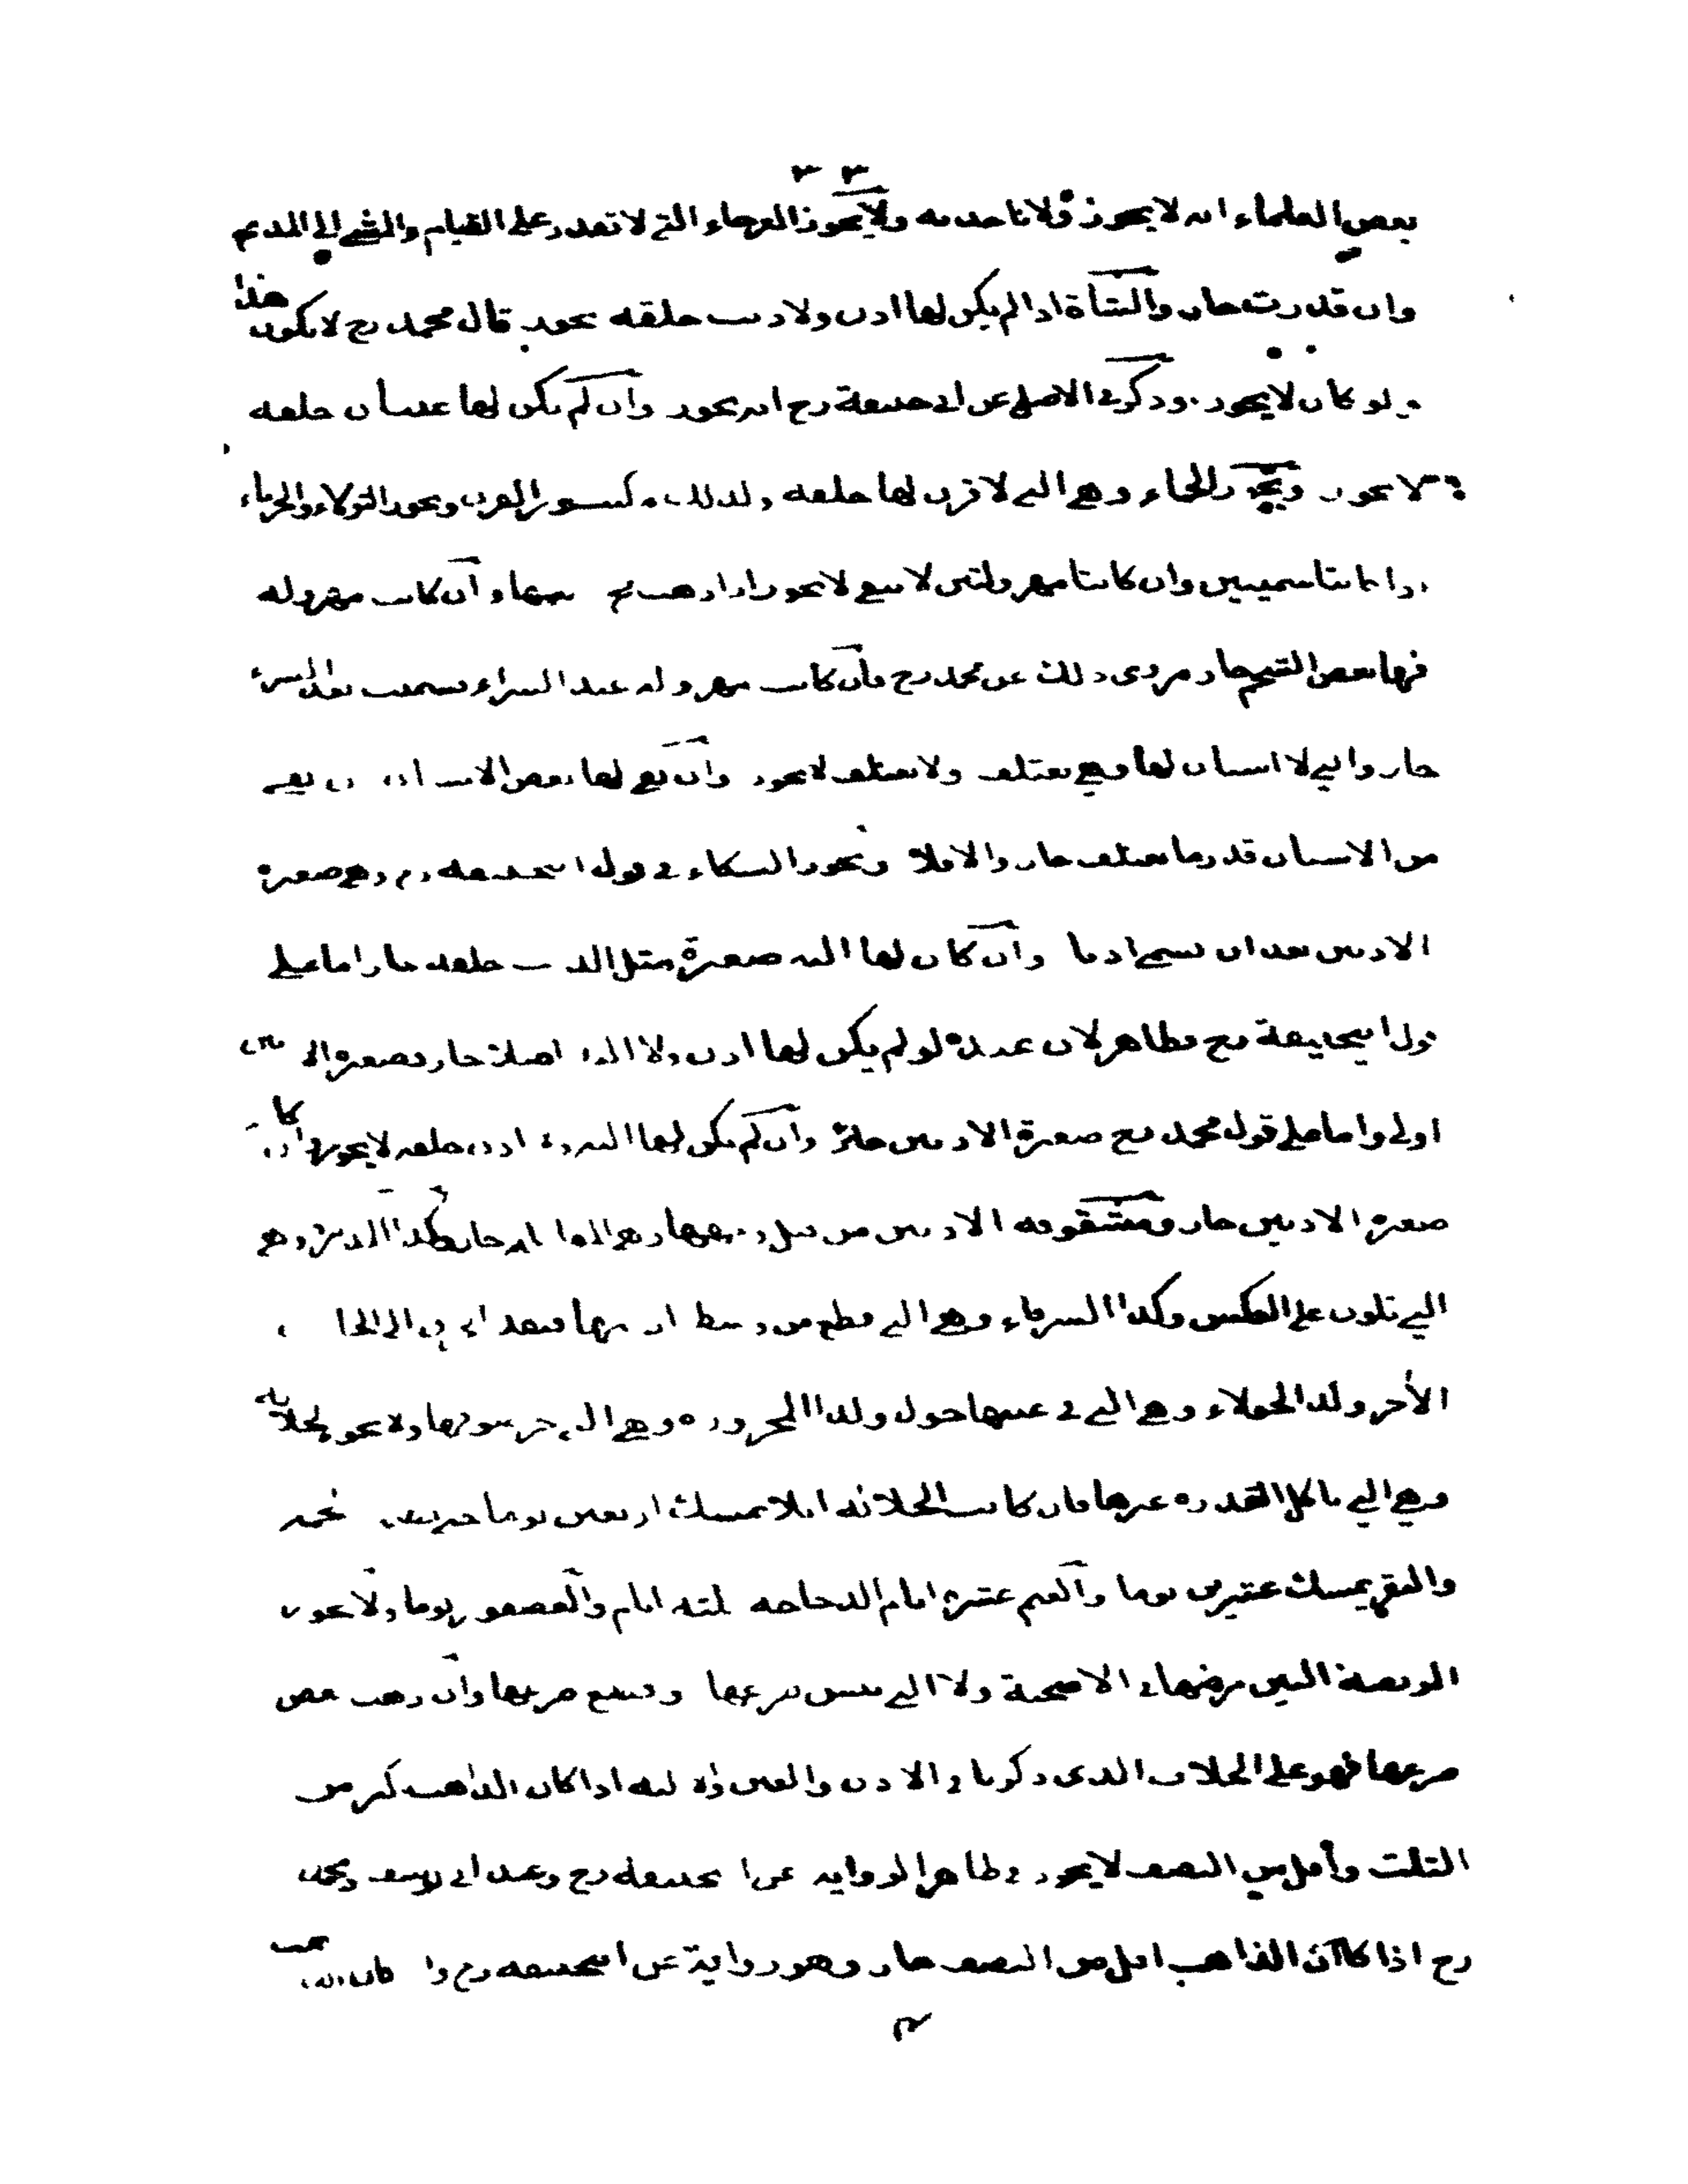 بعض العلماء انه لا يجوز ولا ناخذ به ولا يجوز العرجاء التي لا تقدر على القيام والمشي الى المذبح
وان قدرت جاز والشاة اذا لم يكن لها اذن ولا ذنب خلقه يجوز قال محمد رح لا يكون هذا
ولو كان لا يجوز وذكر في الاصل عن ابي حنيفة رح انه يجوز وان لم يكن لها عينان خلقه
لا يجوز ويجوز الجماء وهي التي لا قرن لها خلقه وكذلك مكسور القرن ويجوز الثولاء والجرباء
اذا كانتا سمينتين وان كانتا مهزولتين لا ينقي لا يجوز اذا ذهب مخ عينها وان كانت مهزوله
فيها بعض الشحم جاز مروى ذلك عن محمد رح فان كانت مهزوله عند الشراء فسمنت بعد الشراء
جاز والتي لا اسنان لها وهي تعتلف ولا تعتلف لا يجوز وان بقي لها بعض الاسنان ان بقي
من الاسنان قدر ما تعتلف جاز والا فلا ويجوز السكاء في قول ابيحنيفه رح وهي صغيرة
الاذنين بعد ان تسمى اذنا وان كان لها الية صغيرة مثل الذنب خلقه جاز اما على
قول ابيحنيفة رح فظاهر لان عنده لو لم يكن لها اذن ولا الية اصلا جاز فصغيرة الاذنين
اولى واما على قول محمد رح صغيرة الاذنين جائز وان لم يكن لها الية ولا اذن خلقه لا يجوز وان كان
صغيرة الاذنين جاز ومشقوقه الاذنين من قبل وجهها وهي المقابلة جاز وكذا المدبرة وهي
التي تكون على العكس وكذا الشرقاء وهي التي قطع من وسط اذنها فنفذ الخرق الى الجانب
الآخر وكذا الحولاء وهي التي في عينها حول وكذا المجزوزه وهي التي جز صوفها ولا يجوز الجلاله
وهي التي تاكل العذره غيرها فان كانت الجلالة ابلا تمسك اربعين يوما حتى يطيب لحمه
والبقر يمسك عشرين يوما والغنم عشرة ايام الدجاجه ثلثه ايام والعصفور يوما ولا يجوز
المريضة البين مرضها في الاضحية ولا التي يبس ضرعها وقطع ضرعها وان ذهب بعض
ضرعها فهو على الخلاف الذي ذكرنا في الاذن والعين والاليه اذا كان الذاهب اكثر من
الثلث واقل من النصف لا يجوز في ظاهر الروايه عن ابيحنيفه رح وعند ابي يوسف ومحمد
رح اذا كان الذاهب اقل من النصف جاز وهو رواية عن ابيحنيفه رح وان كان الذاهب